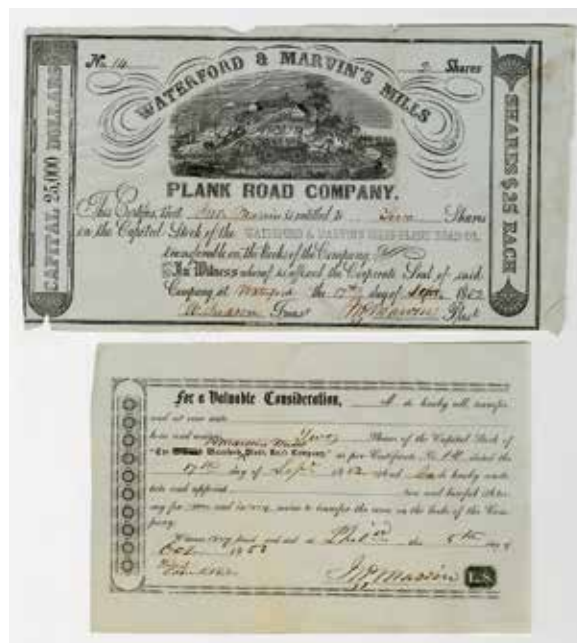 No. 14 2 Shares
WATERFORD & MARVIN'S MILLS
CAPITAL 25,000 DOLLARS
SHARES $25 EACH
PLANK ROAD COMPANY.
This Certifies that Marvin is entitled to Two Shares
on the Capital Stock of the WATERFORD & MARVIN'S MILLS PLANK ROAD CO.
transferable on the Books of the Company
In Witness whereof is affixed the Corporate Seal of said
Company at Waterford the 17th day of Sept. 1852
Treas. Marvin Prest.
For a Valuable Consideration, I do hereby sell, transfer
and set over unto
Two Shares of the Capital Stock of
Plank Road Company," as per Certificate No. 14, dated the
17th day of Sept. 1852 and do hereby consti-
tute and appoint true and lawful Attor-
ney for me and in my name to transfer the same on the books of the Com-
pany.
Witness my hand and seal at the 8th day of
Oct. 1853
Marvin L.S.